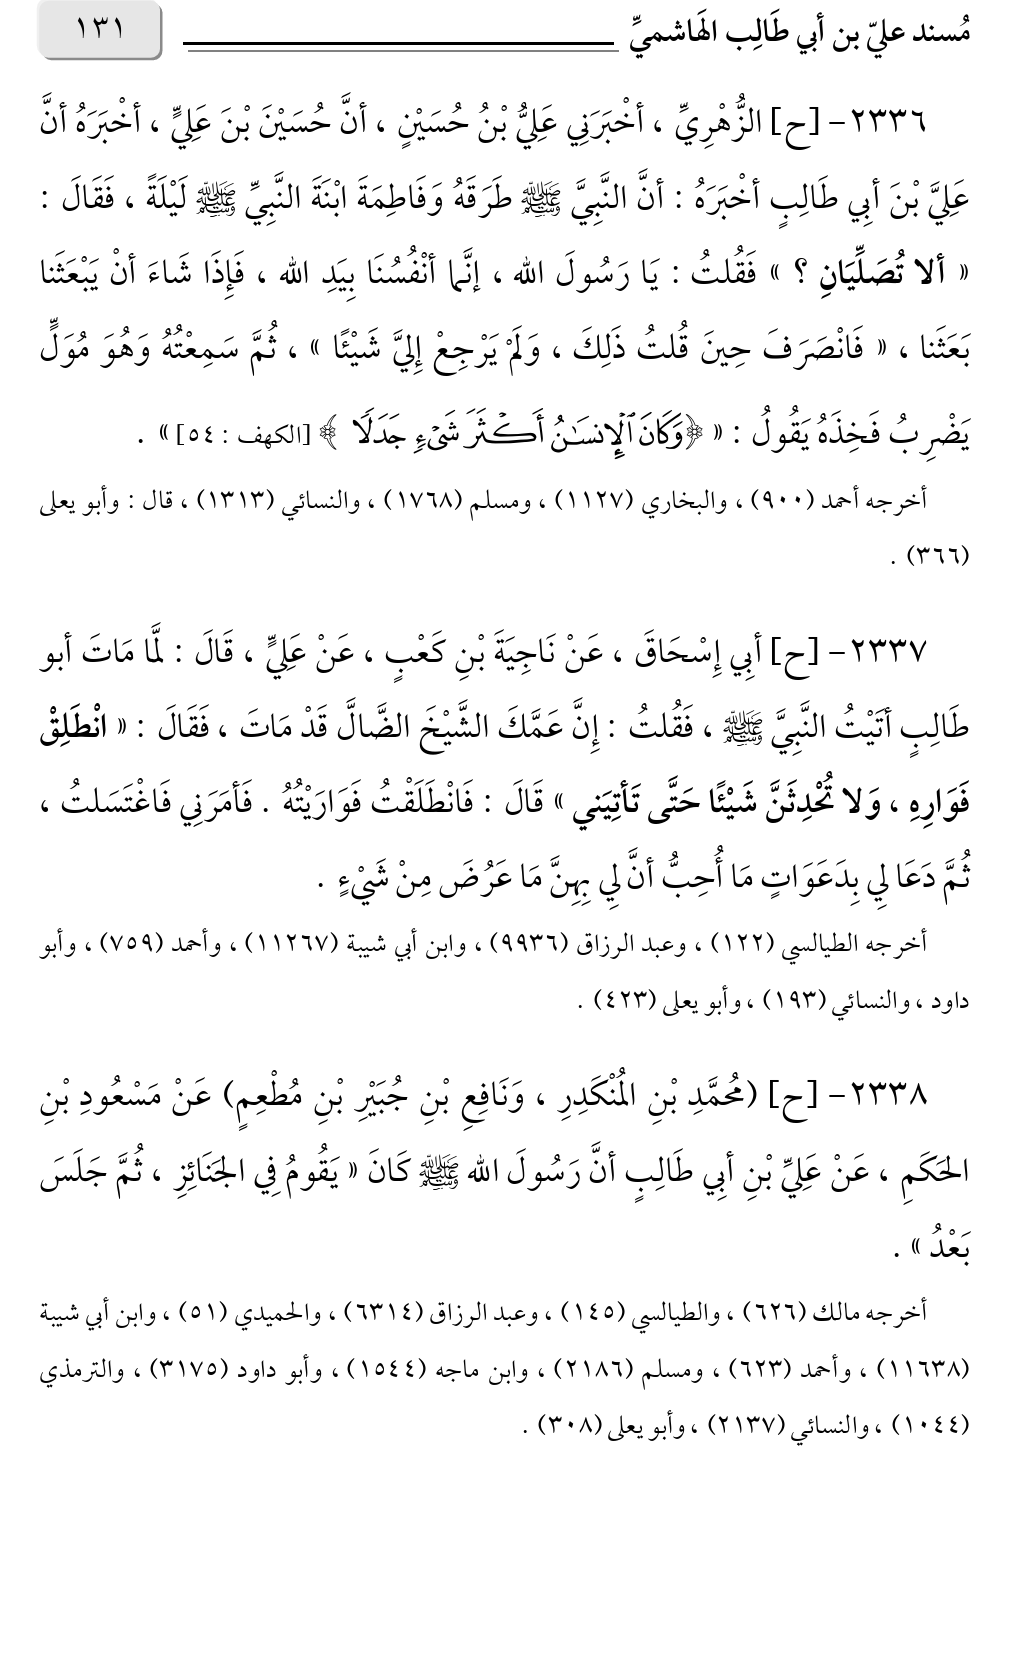 مُسند عليّ بن أبي طَالِب الهَاشميِّ ١٣١
٢٣٣٦- [ح] الزُّهْرِيِّ ، أخْبَرَنِي عَلِيُّ بْنُ حُسَيْنٍ ، أنَّ حُسَيْنَ بْنَ عَلِيٍّ ، أخْبَرَهُ أنَّ
عَلِيَّ بْنَ أبِي طَالِبٍ أخْبَرَهُ : أنَّ النَّبِيَّ ﷺ طَرَقَهُ وَفَاطِمَةَ ابْنَةَ النَّبِيِّ ﷺ لَيْلَةً ، فَقَالَ :
« ألا تُصَلِّيَانِ ؟ » فَقُلتُ : يَا رَسُولَ الله ، إنَّما أنْفُسُنَا بِيَدِ الله ، فَإِذَا شَاءَ أنْ يَبْعَثَنا
بَعَثَنا ، « فَانْصَرَفَ حِينَ قُلتُ ذَلِكَ ، وَلَمْ يَرْجِعْ إِليَّ شَيْئًا » ، ثُمَّ سَمِعْتُهُ وَهُوَ مُوَلٍّ
يَضْرِبُ فَخِذَهُ يَقُولُ : « ﴿وَكَانَ ٱلْإِنسَٰنُ أَكْثَرَ شَىْءٍ جَدَلًا ﴾ [الكهف : ٥٤] » .
أخرجه أحمد (٩٠٠) ، والبخاري (١١٢٧) ، ومسلم (١٧٦٨) ، والنسائي (١٣١٣) ، قال : وأبو يعلى
(٣٦٦) .
٢٣٣٧- [ح] أبِي إِسْحَاقَ ، عَنْ نَاجِيَةَ بْنِ كَعْبٍ ، عَنْ عَلِيٍّ ، قَالَ : لمَّا مَاتَ أبو
طَالِبٍ أتَيْتُ النَّبِيَّ ﷺ ، فَقُلتُ : إِنَّ عَمَّكَ الشَّيْخَ الضَّالَّ قَدْ مَاتَ ، فَقَالَ : « انْطَلِقْ
فَوَارِهِ ، وَلا تُحْدِثَنَّ شَيْئًا حَتَّى تَأتِيَني » قَالَ : فَانْطَلَقْتُ فَوَارَيْتُهُ . فَأمَرَنِي فَاغْتَسَلتُ ،
ثُمَّ دَعَا لِي بِدَعَوَاتٍ مَا أُحِبُّ أنَّ لِي بِهِنَّ مَا عَرُضَ مِنْ شَيْءٍ .
أخرجه الطيالسي (١٢٢) ، وعبد الرزاق (٩٩٣٦) ، وابن أبي شيبة (١١٢٦٧) ، وأحمد (٧٥٩) ، وأبو
داود ، والنسائي (١٩٣) ، وأبو يعلى (٤٢٣) .
٢٣٣٨- [ح] (مُحمَّدِ بْنِ المُنْكَدِرِ ، وَنَافِعِ بْنِ جُبَيْرِ بْنِ مُطْعِمٍ) عَنْ مَسْعُودِ بْنِ
الحَكَمِ ، عَنْ عَلِيِّ بْنِ أبِي طَالِبٍ أنَّ رَسُولَ الله ﷺ كَانَ « يَقُومُ فِي الجَنَائِزِ ، ثُمَّ جَلَسَ
بَعْدُ » .
أخرجه مالك (٦٢٦) ، والطيالسي (١٤٥) ، وعبد الرزاق (٦٣١٤) ، والحميدي (٥١) ، وابن أبي شيبة
(١١٦٣٨) ، وأحمد (٦٢٣) ، ومسلم (٢١٨٦) ، وابن ماجه (١٥٤٤) ، وأبو داود (٣١٧٥) ، والترمذي
(١٠٤٤) ، والنسائي (٢١٣٧) ، وأبو يعلى (٣٠٨) .